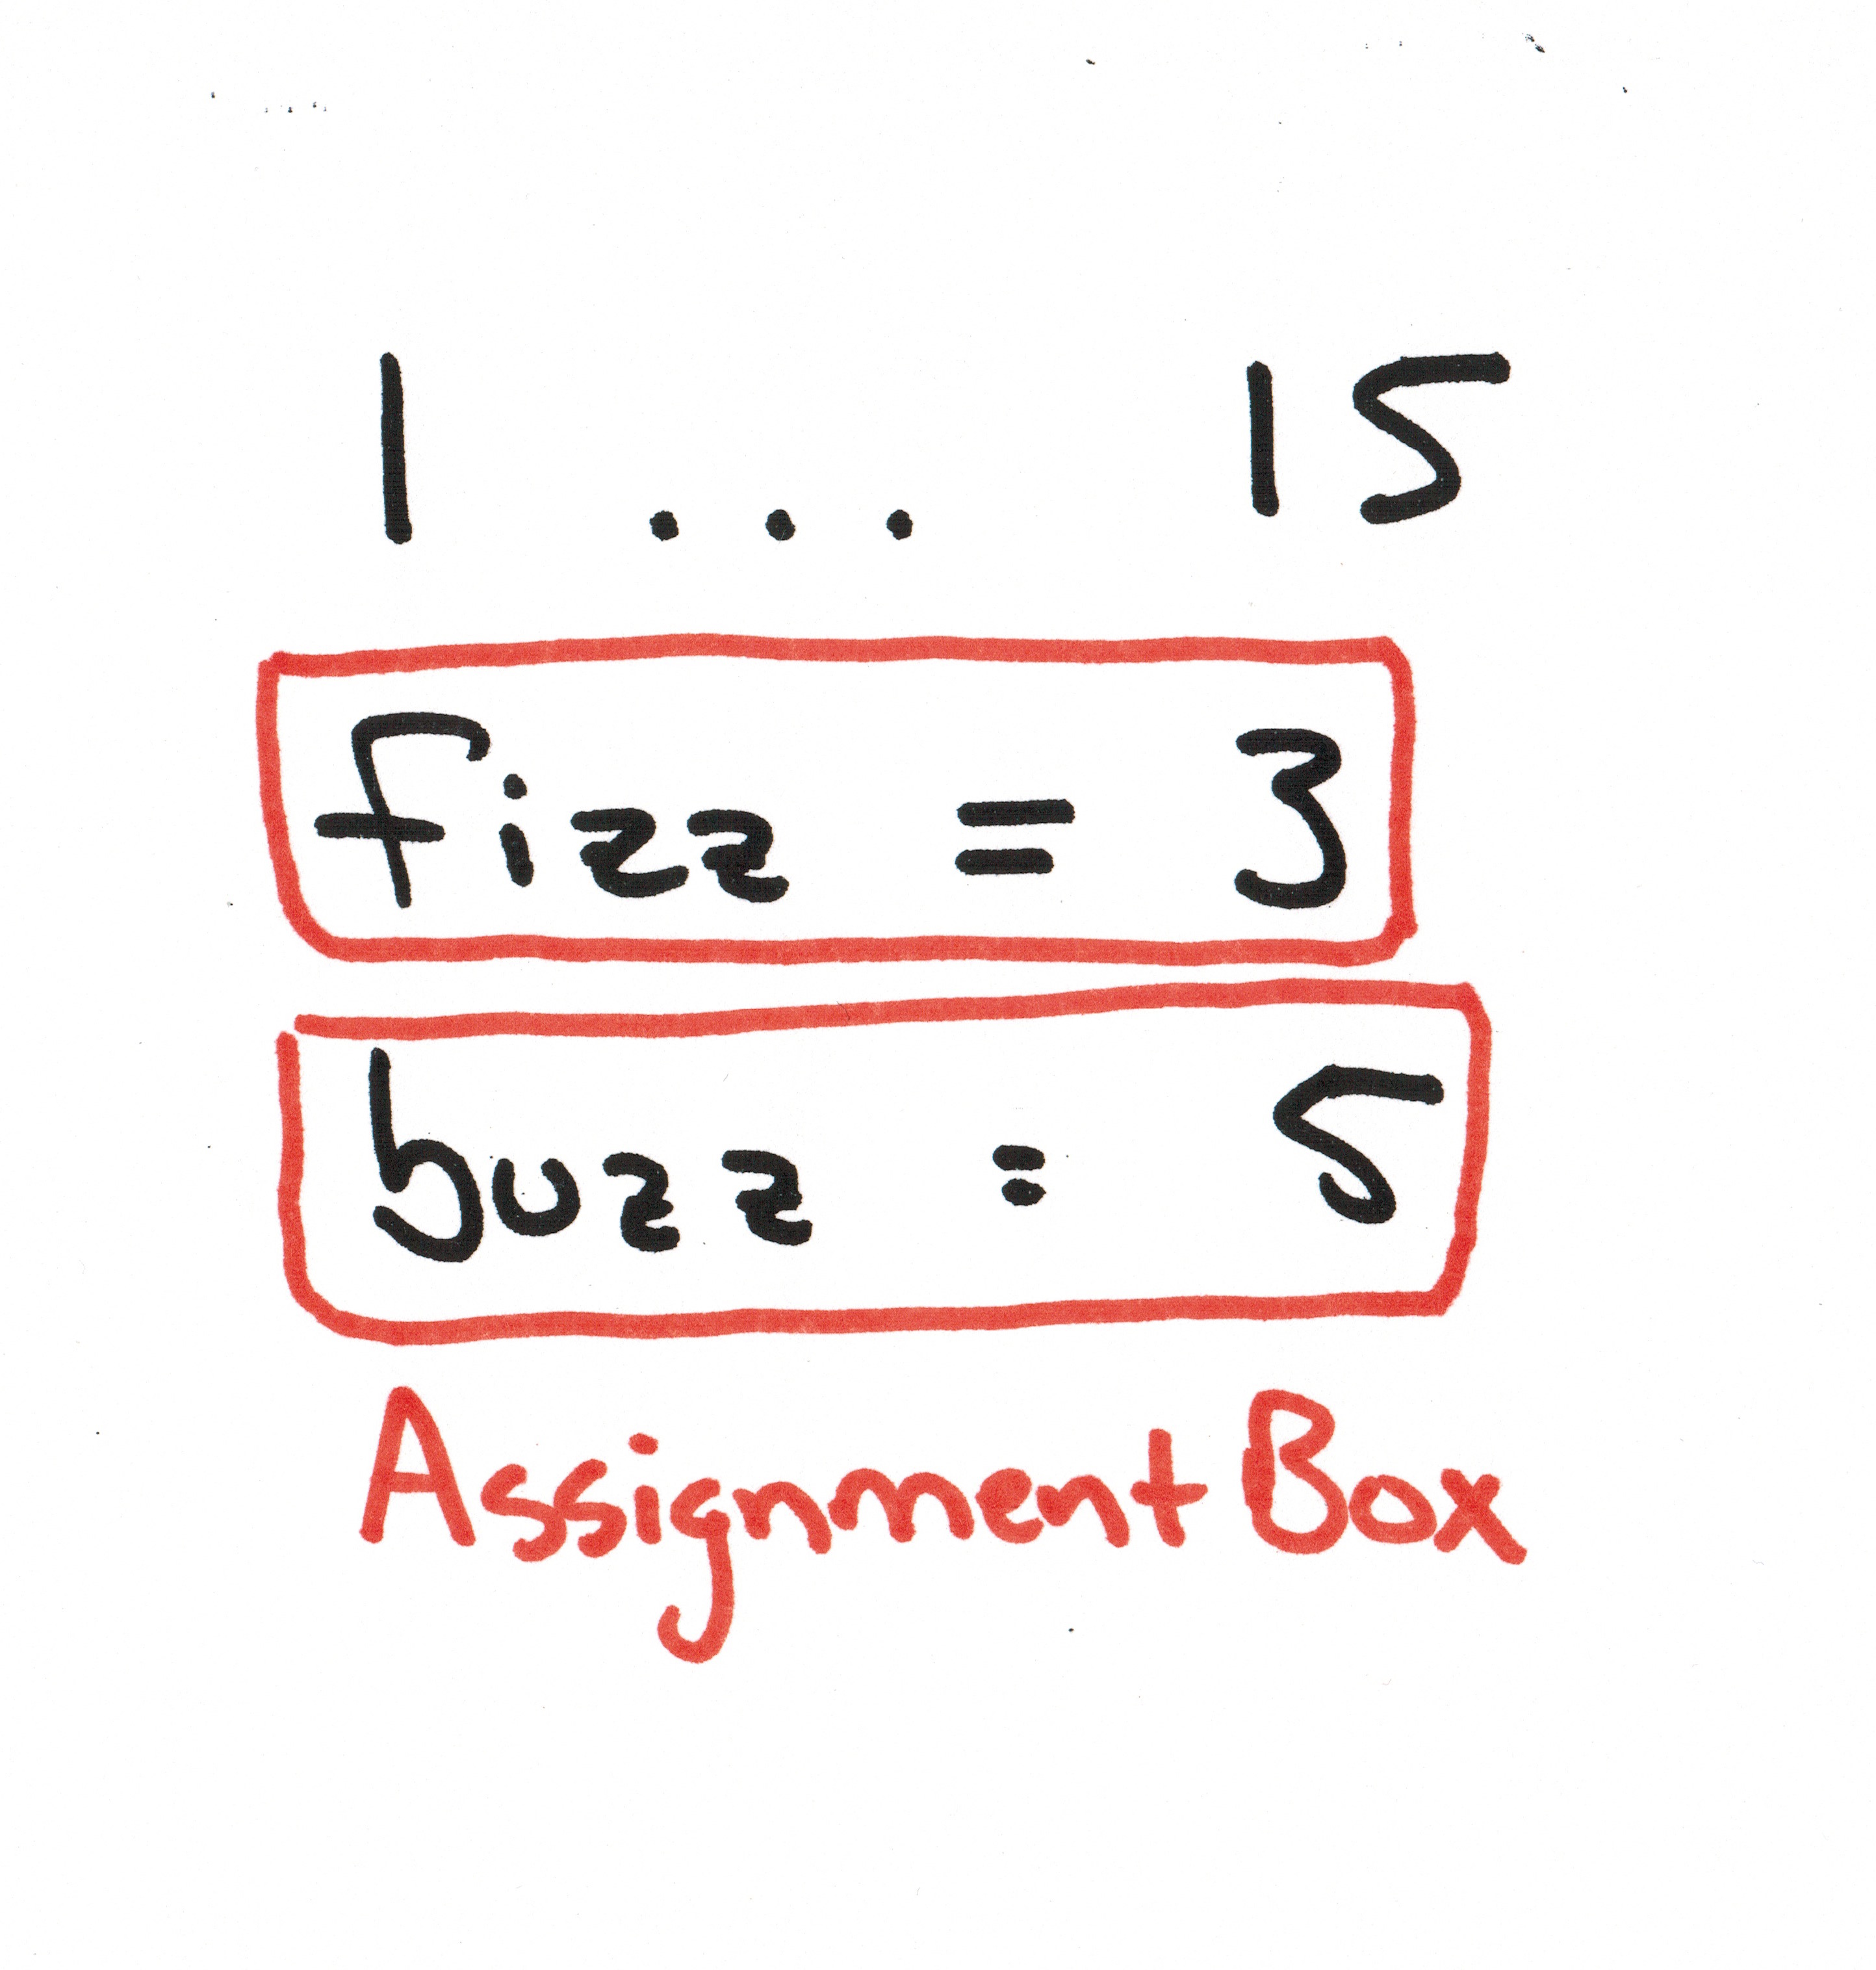 1 ... 15
fizz = 3
buzz = 5
Assignment Box